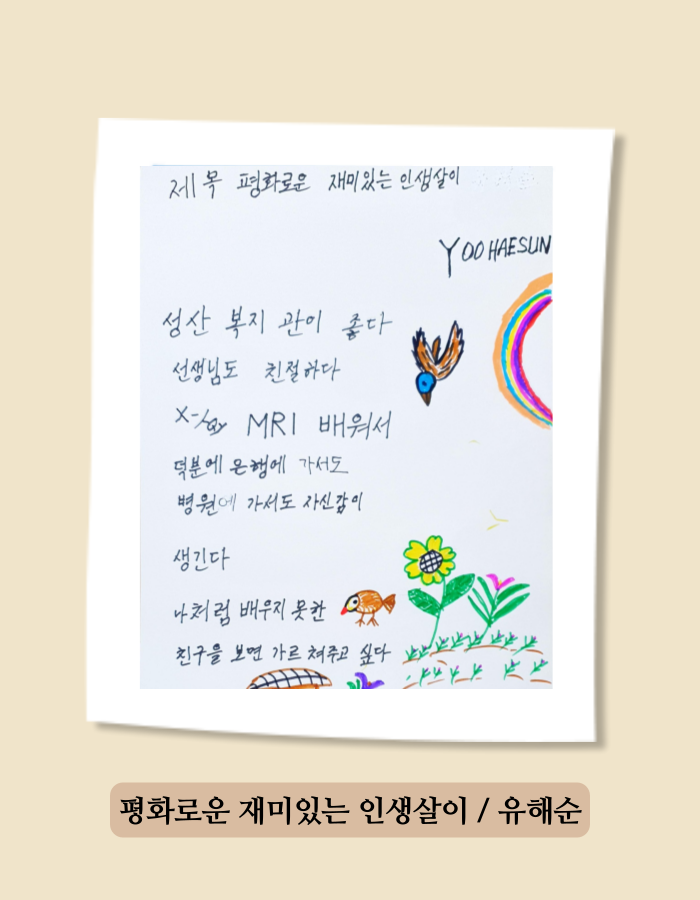 제목 평화로운 재미있는 인생살이
YOO HAESUN
성산 복지 관이 좋다
선생님도 친절하다
X-ray MRI 배워서
덕분에 은행에 가서도
병원에 가서도 자신감이
생긴다
나처럼 배우지 못한
친구을 보면 가르쳐주고 싶다
평화로운 재미있는 인생살이 / 유해순